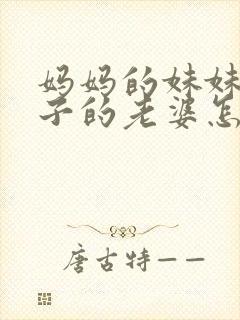 妈妈的妹妹
子的老婆怎
唐古特——